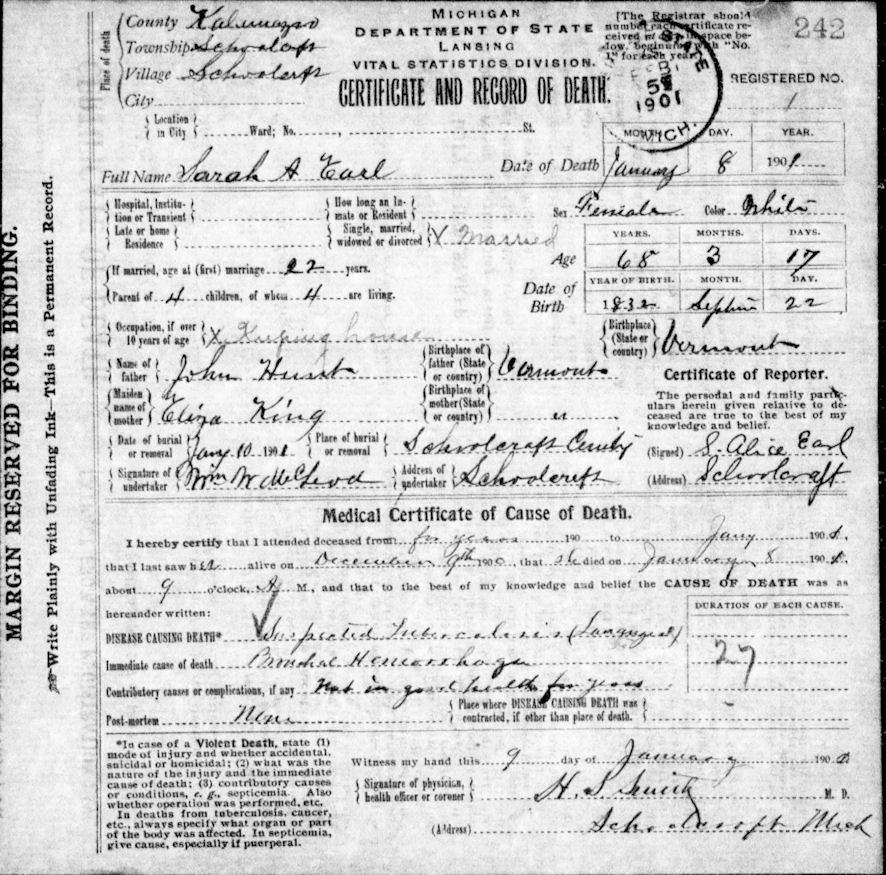 MICHIGAN
DEPARTMENT OF STATE
LANSING
VITAL STATISTICS DIVISION.
CERTIFICATE AND RECORD OF DEATH.
[The Registrar should
number each certificate re-
ceived in space be-
low, beginning with "No.
1" for each year.]
242
REGISTERED NO.
1
STATE
FEB
5
1901
MICH.
Place of death
County Kalamazoo
Township Schoolcraft
Village Schoolcraft
City
Location in City Ward; No. , St.
Full Name Sarah A Earl
Date of Death
MONTH. DAY. YEAR.
January 8 1901
Hospital, Institu-
tion or Transient
How long an In-
mate or Resident
Sex Female Color White
Late or home
Residence
Single, married,
widowed or divorced X Married
Age
YEARS. MONTHS. DAYS.
68 3 17
If married, age at (first) marriage 22 years.
Parent of 4 children, of whom 4 are living.
Date of Birth
YEAR OF BIRTH. MONTH. DAY.
1832 22
Occupation, if over
10 years of age X Keeping house
Birthplace
(State or
country) Vermont
Name of
father John Hunt
Birthplace of
father (State
or country) Vermont
Maiden
name of
mother Eliza King
Birthplace of
mother (State
or country) "
Certificate of Reporter.
The personal and family partic-
ulars herein given relative to de-
ceased are true to the best of my
knowledge and belief.
(Signed) S. Alice Earl
(Address) Schoolcraft
Date of burial
or removal Jany 10 1901
Place of burial
or removal Schoolcraft
Signature of
undertaker Wm W McLeod
Address of
undertaker Schoolcraft
Medical Certificate of Cause of Death.
I hereby certify that I attended deceased from for years 190 to Jany 1901,
that I last saw her alive on December 9th 1900, that she died on January 8 1901,
about 9 o'clock, A M., and that to the best of my knowledge and belief the CAUSE OF DEATH was as
hereunder written:
DURATION OF EACH CAUSE.
DISEASE CAUSING DEATH* Suspected Tuberculosis (Laryngeal)
27
Immediate cause of death Bronchial Hemorrhage
Contributory causes or complications, if any Not in good health for years
Post-mortem None
Place where DISEASE CAUSING DEATH was
contracted, if other than place of death.
*In case of a Violent Death, state (1)
mode of injury and whether accidental,
suicidal or homicidal; (2) what was the
nature of the injury and the immediate
cause of death; (3) contributory causes
or conditions, e. g., septicemia. Also
whether operation was performed, etc.
In deaths from tuberculosis, cancer,
etc., always specify what organ or part
of the body was affected. In septicemia,
give cause, especially if puerperal.
Witness my hand this 9 day of January 190
Signature of physician,
health officer or coroner H. S Smith M. D.
(Address) Schoolcraft Mich
MARGIN RESERVED FOR BINDING.
Write Plainly with Unfading Ink—This is a Permanent Record.